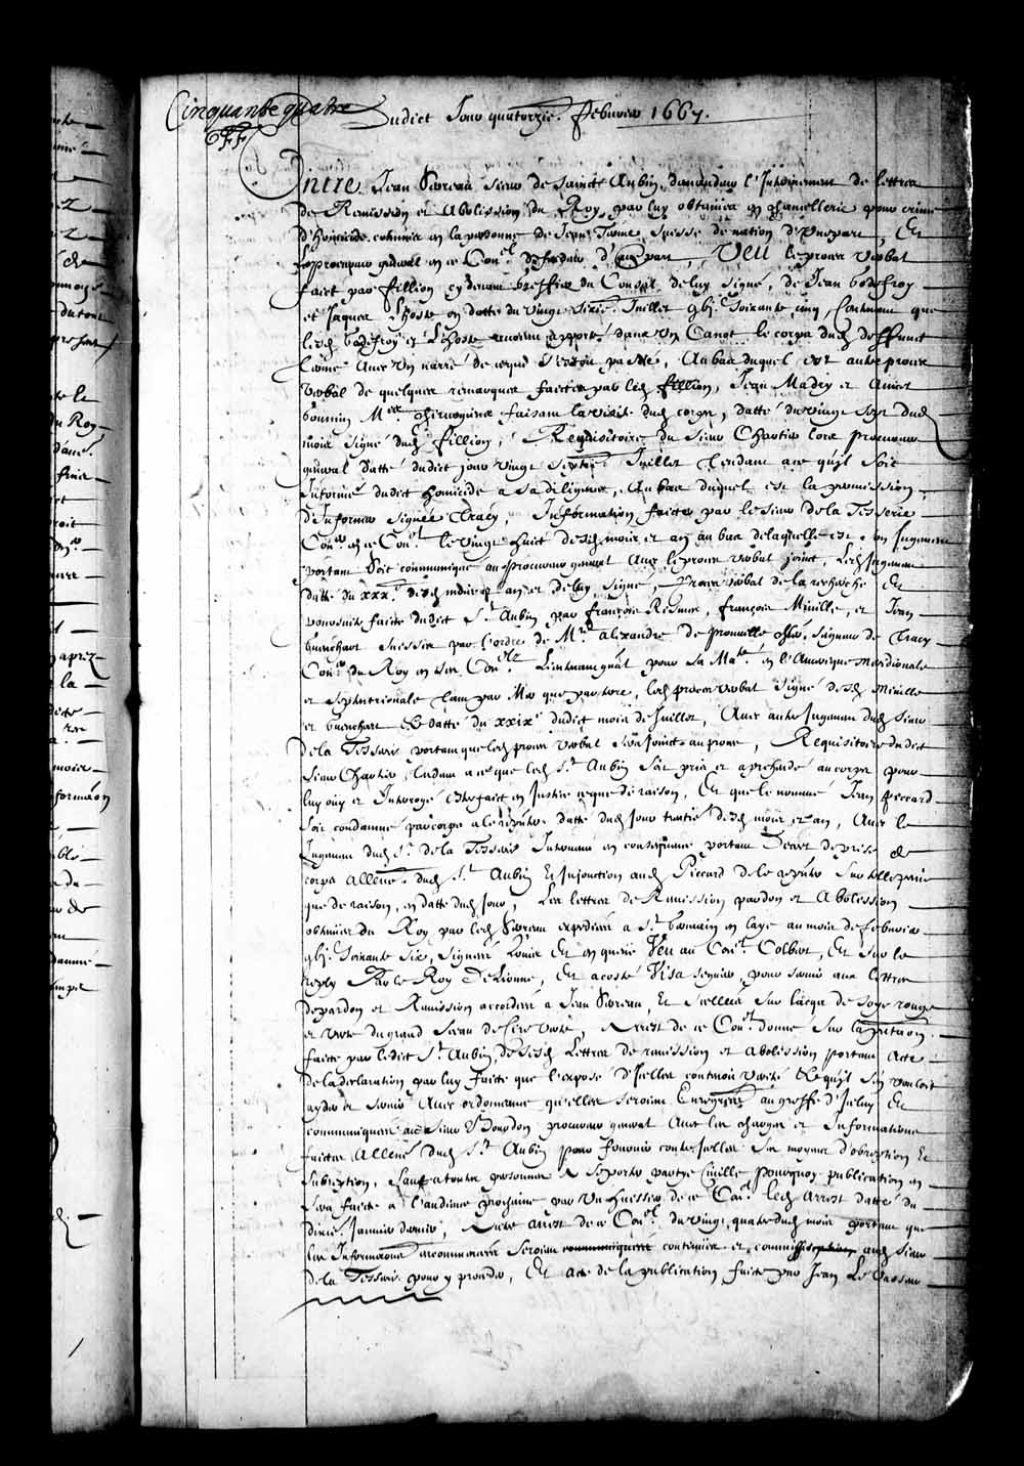 Cinquante quatre
Dudict Jour quatorzie. Febvrier 1667.
ff
Entre Jean Serreau sieur de Sainct Aubin demandeur l'Intherinement de lettres
de Remission et Abolission du Roy, par luy obtenues en chancellerie pour crime
d'homicide commis en la personne de Jean Terme, Suisse de nation d'Unepart, Et
le procureur general en ce Con.el defendeur d'autre part, VEU le procez verbal
faict par fillion cy devant greffier du Conseil de luy signé, de Jean Godefroy
et Jaques Lhoste en datte du vingt sixie. Juillet gbj.c soixante cinq, Contenant que
lesd. Godefroy et Lhoste avoient apporté dans un Canot le corps dud. deffunct
Terme Avec un narré de ce qui s'estoit passé, Au bas duquel est autre procez
verbal de quelques remarques faictes par led. fillion, Jean Madry et
bonnin M.res chirurgiens faisant la visite dud. corps, datté du vingt sept dud.
mois signé dud. fillion, Requisitoire du sieur Chartier lors procureur
general datté dudict jour vingt septie. Juillet tendant a ce qu'il soit
Informé dudict homicide a sa diligence, Au bas duquel est la permission
d'Informer signée Tracy, Information faicte par le sieur de la Tesserie
Con.er en ce Con.el le vingt huict desd. mois et an au bas de laquelle est son Jugement
portant soit communiqué au procureur general Avec le procez verbal joinct, led. Jugement
datté du xxx.e desd. mois et an et de luy signé, procez verbal de la recherche Et
poursuite faicte dudict S.t Aubin par françois
 françois Miville, et Jean
Guenchart suisses par l'ordre de M.re Alexandre de prouville Seigneur de Tracy
Con.er du Roy en ses Con.elz Lieutenant gnãl pour sa Ma.té en l'Amerique meridionale
et septentrionale tant par Mer que par terre, led. procez verbal signé desd. Miville
et Guenchart Et datté du xxix.e dudict mois de Juillet, Autre Jugement dud. sieur
de la Tesserie portant que led. procez verbal sera joinct au procez, Requisitoire dudict
sieur Chartier tendant a ce que led. S.t Aubin soit pris et aprehendé au corps pour
luy ouy et Interogé estre faict en Justice ce que de raison, Et que le nommé Jean peccard
soit condamné par corps a le datté dud. jour trentie. desd. mois et an, Avec le
Jugement dud. S.r de la Tesserie Intervenu en consequence portant Decret de prise de
corps allencõ. dud. S.t Aubin Et Injonction aud. Piccard de le sur telle peine
que de raison, en datte dud. jour, Les lettres de Remission pardon et Abolession
obtenues du Roy par led. Serreau expediées a S.t Germain en Laye au mois de febvrier
gbj.c soixante six, signées Louis Et en queüe Veu au Con.el Colbert, Et sur le
reply Par le Roy DeLionne, Et a costé Visa Seguier, pour servir aux lettres
de pardon et Remission accordées a Jean Serreau, Et scellées sur lacqs de soye rouge
et verte du grand sceau de Cire verte, Arrest de ce Con.el donné sur la petition
faicte par ledict S.t Aubin desd. Lettres de remission et abolession portant Acte
de la declaration par luy faicte que l'exposé d'Icelles contenoit verité Et qu'il s'en vouloit
ayder et servir Avec ordonnance qu'elles seroient Enregistrées au greffe d'Iceluy Et
communiquées au sieur Bourdon procureur general Avec les charges et Informations
faictes Allencõ. dud. S.t Aubin pour fournir contre Icelles Ses moyens d'obreption Et
subreption, sauf a toute personne a se porter partye civille pourquoy publication en
sera faicte a l'audience prochaine par un huissier de ce Con.el led. Arrest datté du
dixie. Janvier dernier, Autre arrest de ce Con.el du vingt quatre dud. mois portant que
les Informations encommencées seroient continuées et aud. sieur
de la Tesserie pour y proceder, Et acte de la publication faicte par Jean Le Vasseur